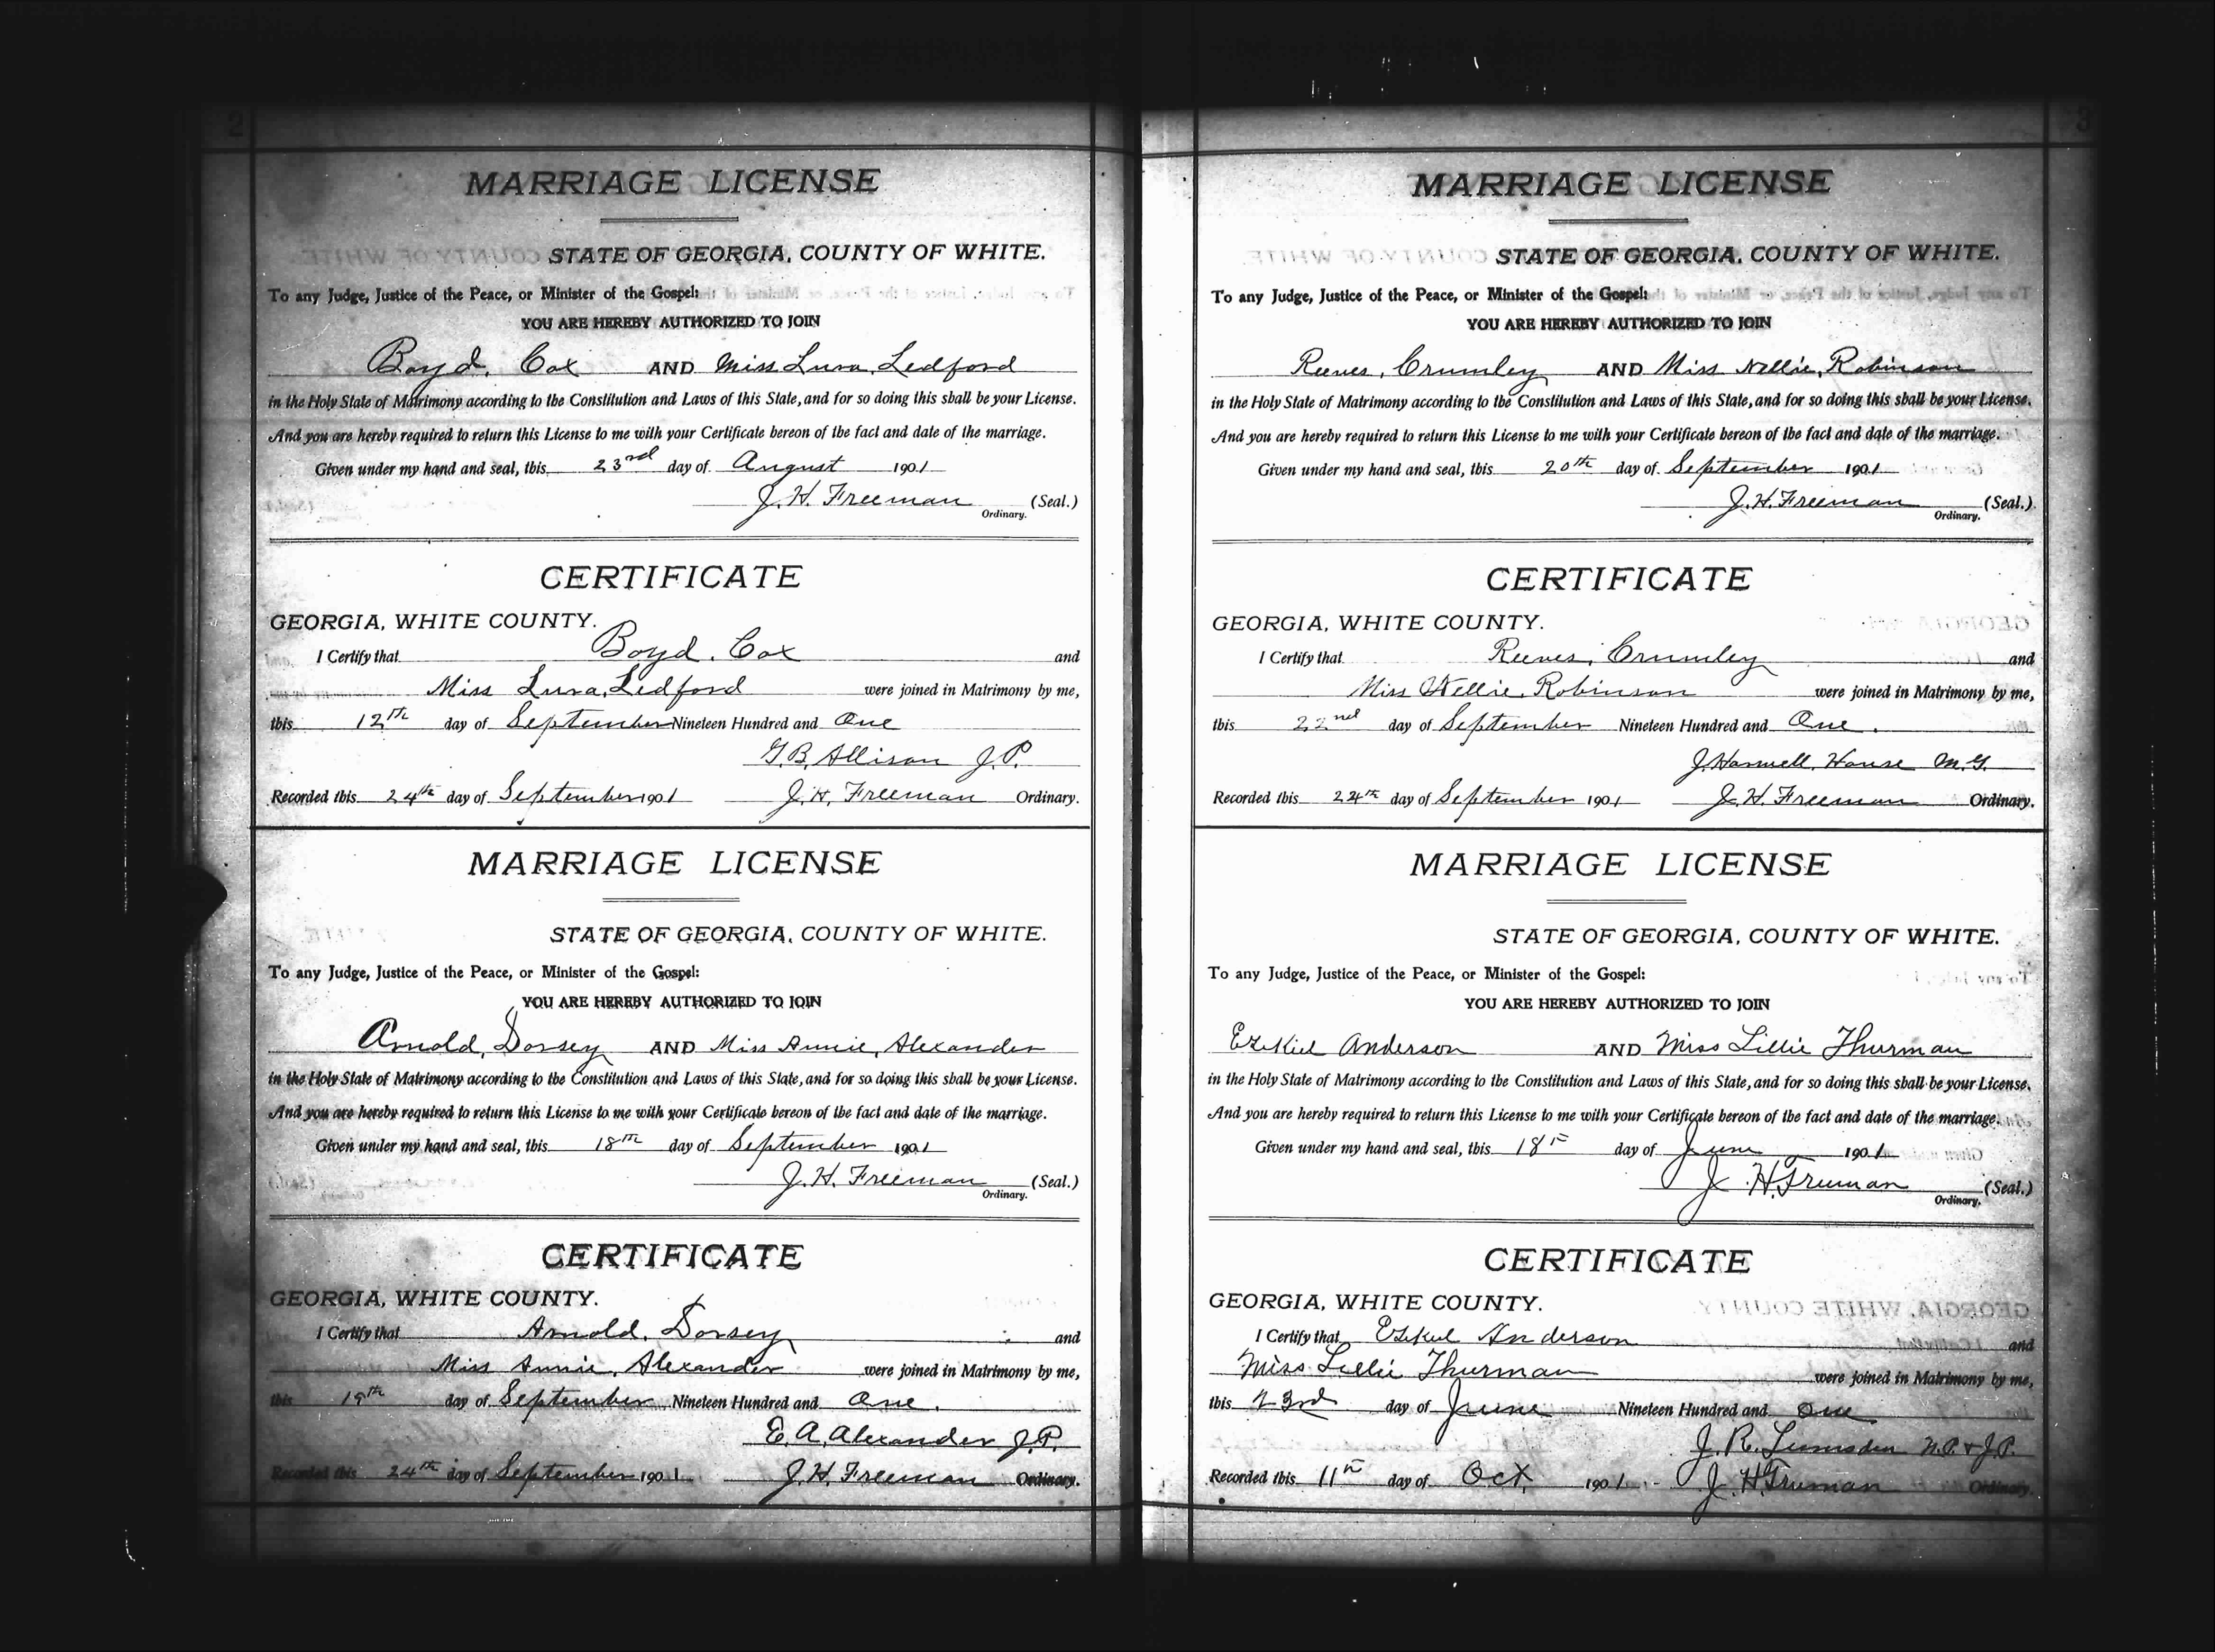 2
MARRIAGE LICENSE
STATE OF GEORGIA, COUNTY OF WHITE.
To any Judge, Justice of the Peace, or Minister of the Gospel:
YOU ARE HEREBY AUTHORIZED TO JOIN
Boyd. Cox AND Miss Lura, Ledford
in the Holy State of Matrimony according to the Constitution and Laws of this State, and for so doing this shall be your License.
And you are hereby required to return this License to me with your Certificate hereon of the fact and date of the marriage.
Given under my hand and seal, this 23rd day of August 1901
J. H. Freeman (Seal.)
Ordinary.
CERTIFICATE
GEORGIA, WHITE COUNTY.
I Certify that Boyd. Cox and
Miss Lura, Ledford were joined in Matrimony by me,
this 12th day of September Nineteen Hundred and One
G. B. Allison J. P.
Recorded this 24th day of September 1901 J. H. Freeman Ordinary.
MARRIAGE LICENSE
STATE OF GEORGIA, COUNTY OF WHITE.
To any Judge, Justice of the Peace, or Minister of the Gospel:
YOU ARE HEREBY AUTHORIZED TO JOIN
Arnold, Dorsey AND Miss Annie, Alexander
in the Holy State of Matrimony according to the Constitution and Laws of this State, and for so doing this shall be your License.
And you are hereby required to return this License to me with your Certificate hereon of the fact and date of the marriage.
Given under my hand and seal, this 18th day of September 1901
J. H. Freeman (Seal.)
Ordinary.
CERTIFICATE
GEORGIA, WHITE COUNTY.
I Certify that Arnold, Dorsey and
Miss Annie, Alexander were joined in Matrimony by me,
this 19th day of September Nineteen Hundred and One.
E. A. Alexander J. P.
Recorded this 24th day of September 1901 J. H. Freeman Ordinary.
3
MARRIAGE LICENSE
STATE OF GEORGIA, COUNTY OF WHITE.
To any Judge, Justice of the Peace, or Minister of the Gospel:
YOU ARE HEREBY AUTHORIZED TO JOIN
Reeves, Crumley AND Miss Nellie, Robinson
in the Holy State of Matrimony according to the Constitution and Laws of this State, and for so doing this shall be your License.
And you are hereby required to return this License to me with your Certificate hereon of the fact and date of the marriage.
Given under my hand and seal, this 20th day of September 1901
J. H. Freeman (Seal.)
Ordinary.
CERTIFICATE
GEORGIA, WHITE COUNTY.
I Certify that Reeves, Crumley and
Miss Nellie, Robinson were joined in Matrimony by me,
this 22nd day of September Nineteen Hundred and One.
J. House M. G.
Recorded this 24th day of September 1901 J. H. Freeman Ordinary.
MARRIAGE LICENSE
STATE OF GEORGIA, COUNTY OF WHITE.
To any Judge, Justice of the Peace, or Minister of the Gospel:
YOU ARE HEREBY AUTHORIZED TO JOIN
Ezekiel Anderson AND Miss Lillie Thurman
in the Holy State of Matrimony according to the Constitution and Laws of this State, and for so doing this shall be your License.
And you are hereby required to return this License to me with your Certificate hereon of the fact and date of the marriage.
Given under my hand and seal, this 18th day of June 1901
J. H. Freeman (Seal.)
Ordinary.
CERTIFICATE
GEORGIA, WHITE COUNTY.
I Certify that Ezekiel Anderson and
Miss Lillie Thurman were joined in Matrimony by me,
this 23rd day of June Nineteen Hundred and One
J. R. Lumsden N.P. & J.P.
Recorded this 11th day of Oct, 1901 J. H. Freeman Ordinary.